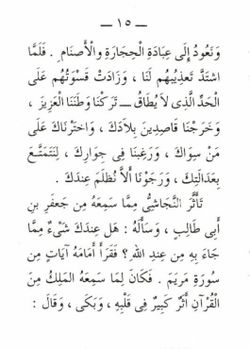 — ١٥ —
وَنَعُودَ إِلَى عِبَادَةِ الْحِجَارَةِ وَالْأَصْنَامِ . فَلَمَّا
اشْتَدَّ تَعْذِيبُهُمْ لَنَا ، وَزَادَتْ قَسْوَتُهُم عَلَى
الْحَدِّ الَّذِى لَا يُطَاقُ — تَرَكْنَا وَطَنَنَا الْعَزِيزَ ،
وَخَرَجْنَا قَاصِدِينَ بِلَادَكَ ، وَاخْتَرْنَاكَ عَلَى
مَنْ سِوَاكَ ، وَرَغِبْنَا فِى جِوَارِكَ ، لِنَتَمَتَّعَ
بِعَدَالَتِكَ ، وَرَجَوْنَا أَلَّا نُظْلَمَ عِنْدَكَ .
تَأَثَّرَ النَّجَاشِىُّ مِمَّا سَمِعَهُ مِن جَعْفَرِ بْنِ
أَبِى طَالِبٍ ، وَسَأَلَهُ : هَل عِنْدَكَ شَىْءٌ مِمَّا
جَاءَ بِهِ مِن عِنْدِ اللهِ ؟ فَقَرَأَ أَمَامَهُ آيَاتٍ مِن
سُورَةِ مَريَمَ . فَكَانَ لِمَا سَمِعَهُ الْمَلِكُ مِنَ
الْقُرْآنِ أَثَرٌ كَبِيرٌ فِى قَلْبِهِ ، وَبَكَى ، وَقَالَ :